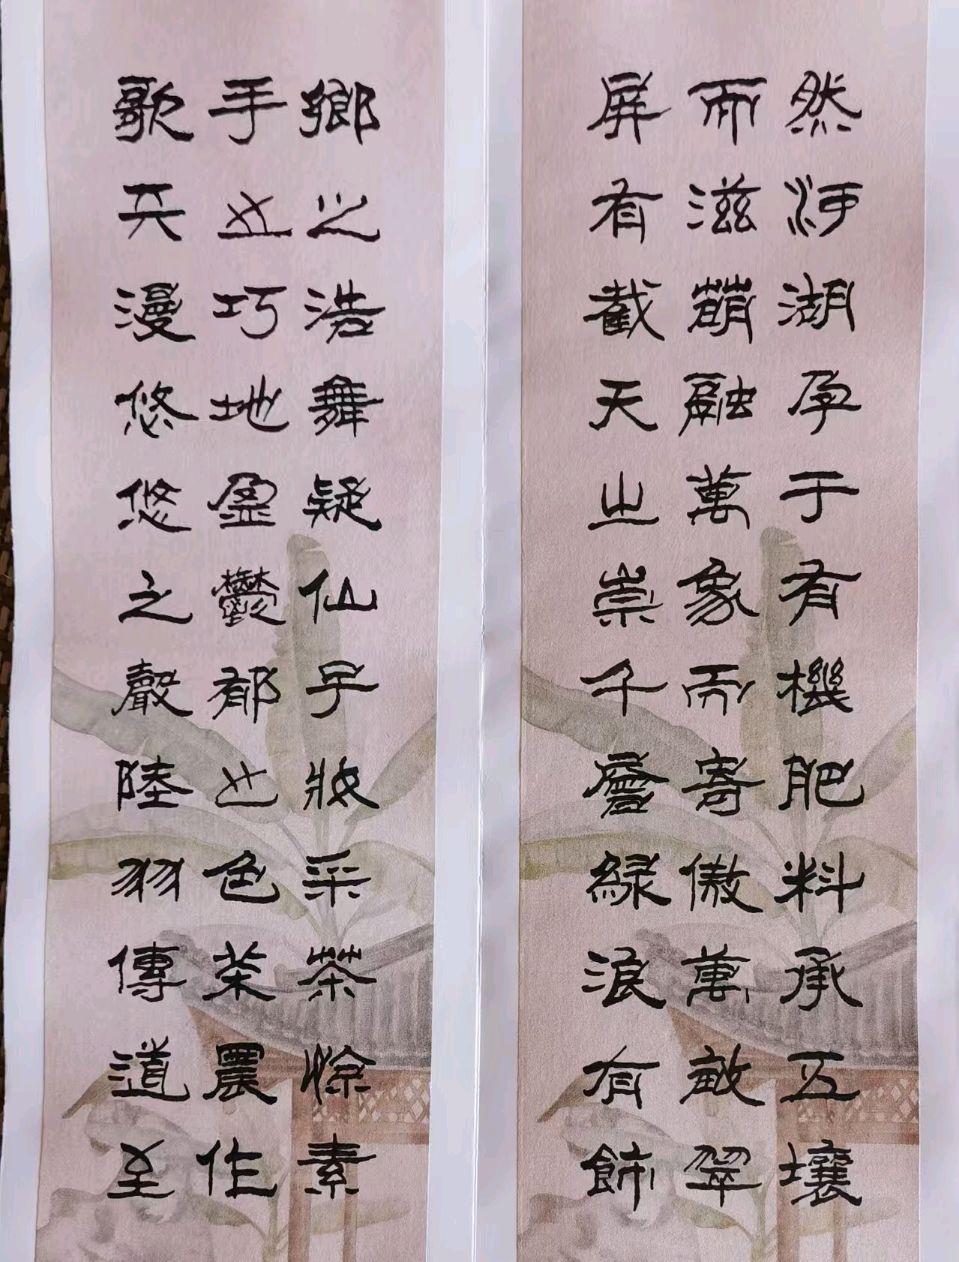 然河湖孕于有機肥料承五壤
而滋萌融萬象而寄傲萬畝翠
屏有截天之崇千層綠浪有飾
鄉之浩舞疑仙子妝采茶素
手之巧地盈鬱郁之色茶農作
歌天漫悠悠之聲陸羽傳道至